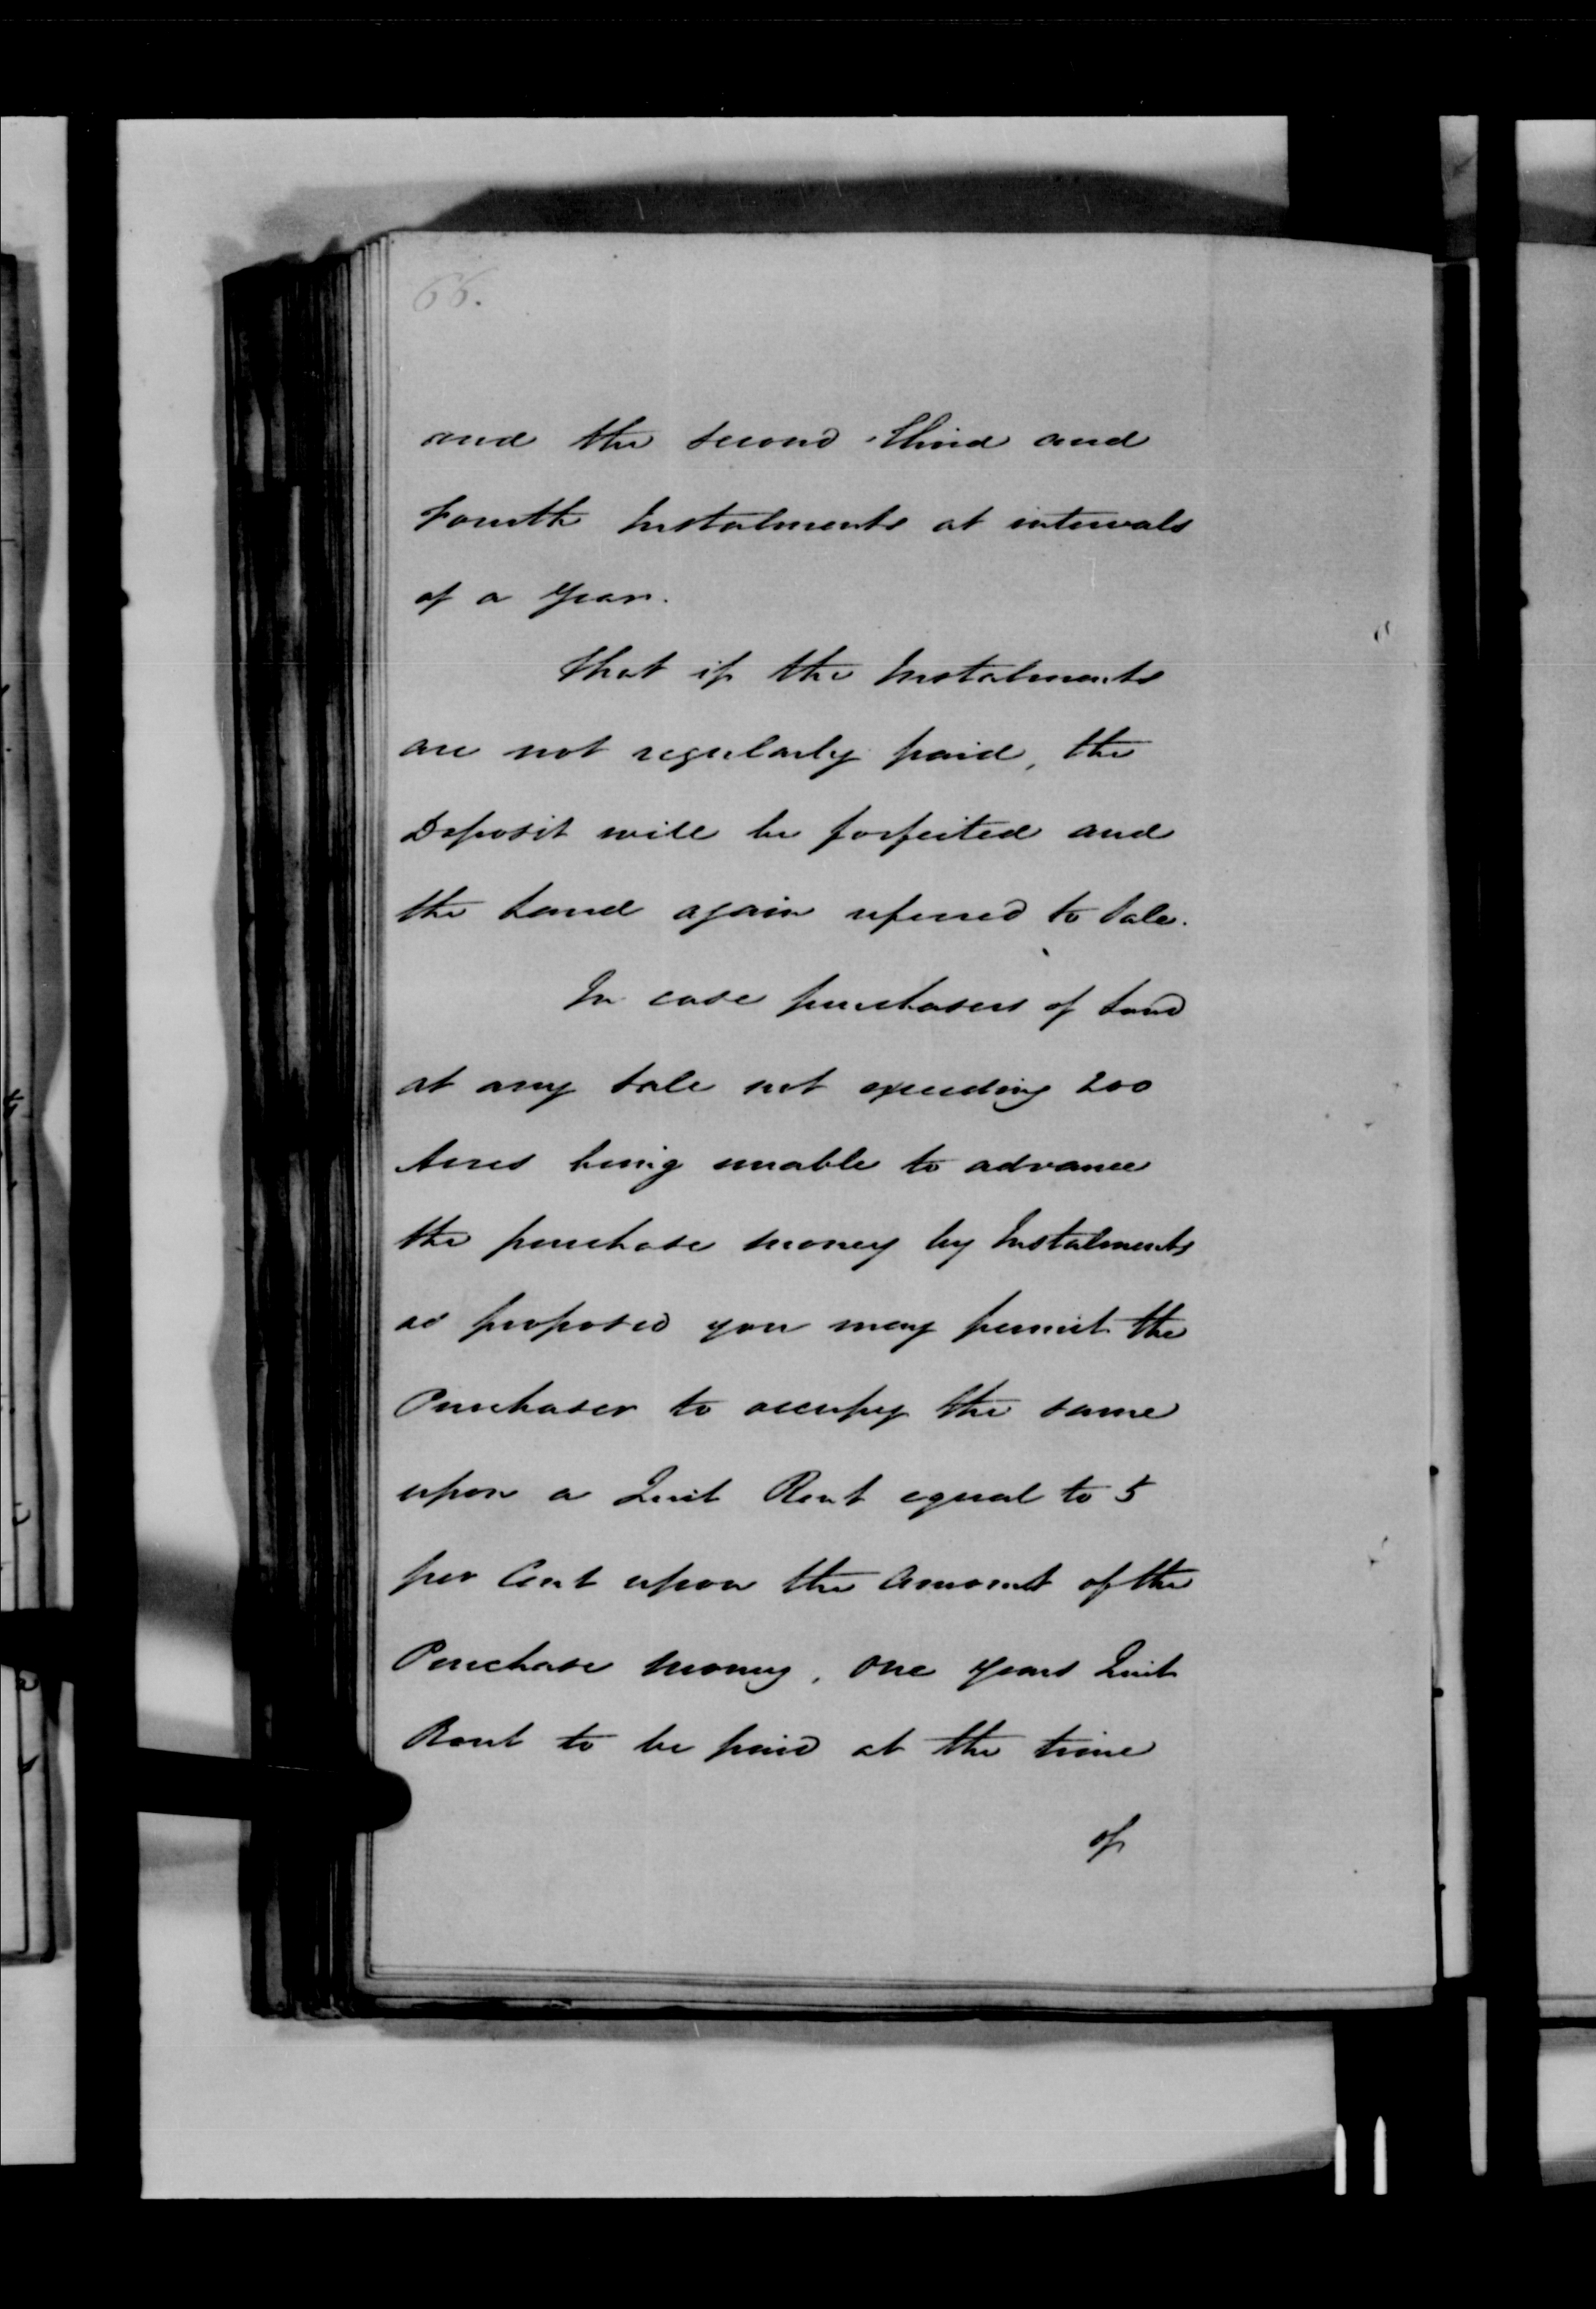 66.
and the second third and
Fourth Instalments at intervals
of a year.
That if the Instalments
are not regularly paid, the
Deposit will be forfeited and
the Land again referred to Sale.
In case purchasers of Land
at any Sale not exceeding 200
Acres being unable to advance
the purchase money by Instalments
as proposed you may permit the
Purchaser to occupy the same
upon a Quit Rent equal to 5
per Cent upon the Amount of the
Purchase Money, One years Quit
Rent to be paid at the time
of